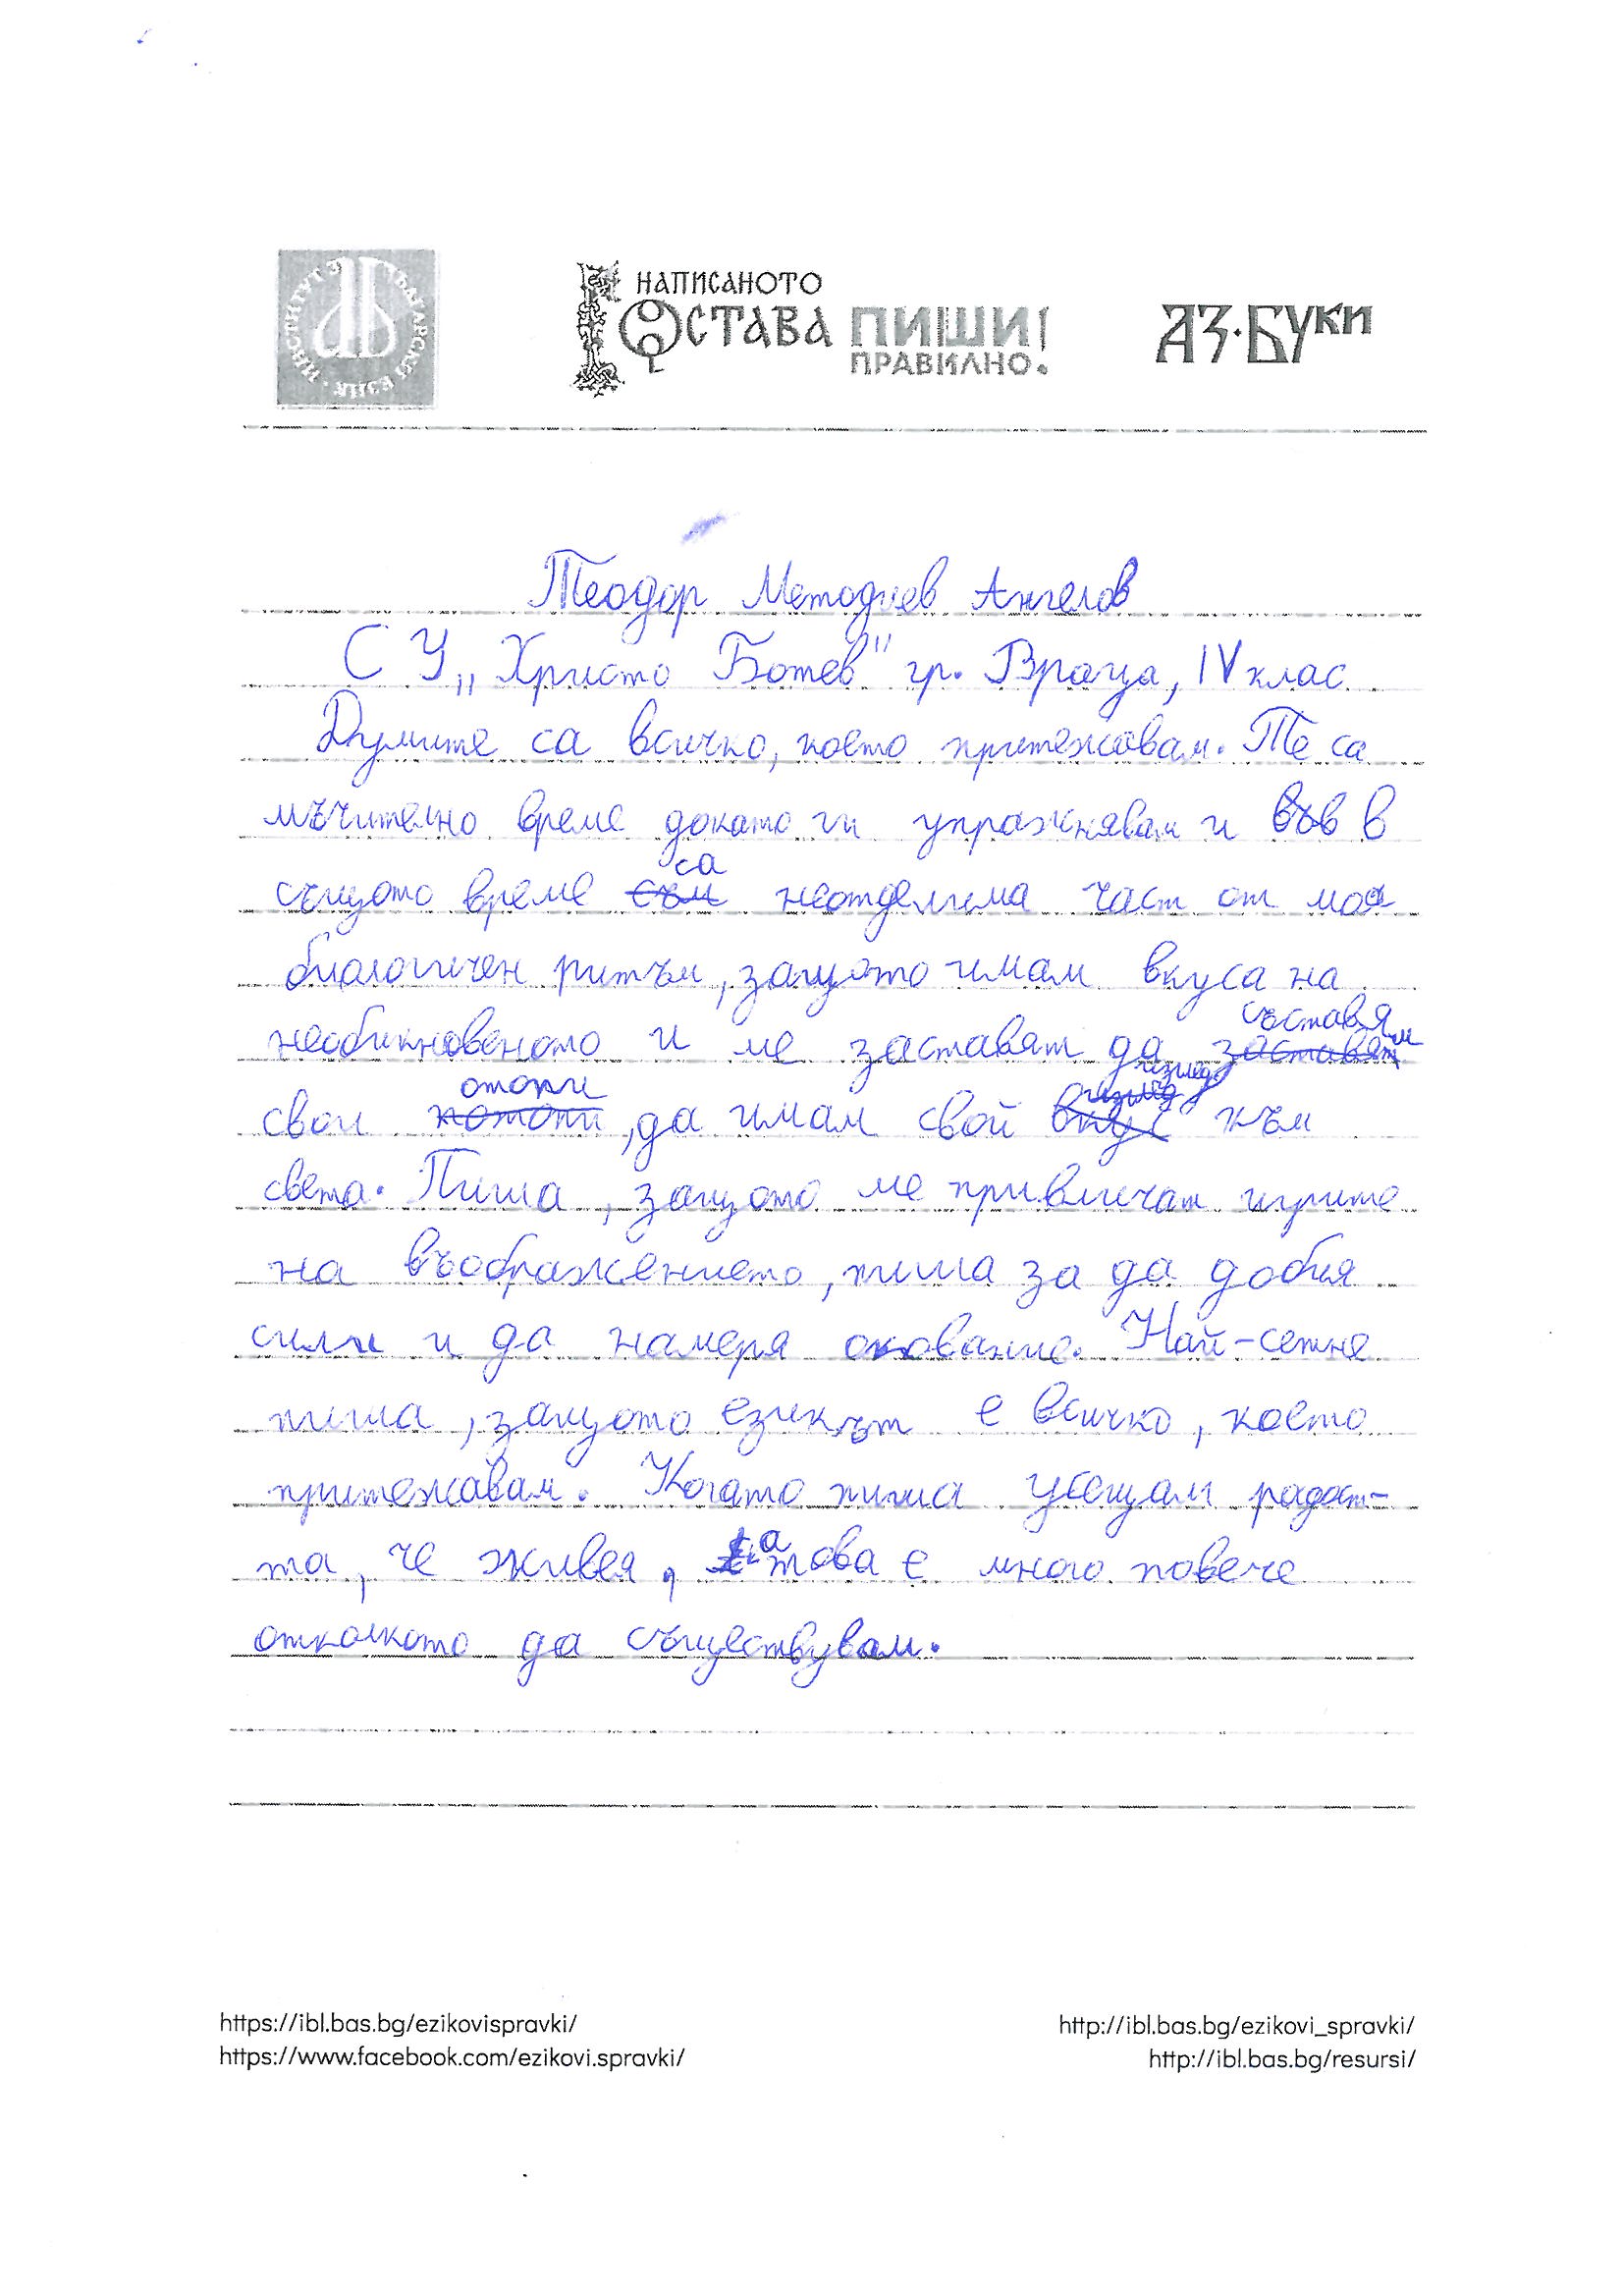 ИНСТИТУТ ЗА БЪЛГАРСКИ ЕЗИК
НАПИСАНОТО
ОСТАВА ПИШИ
ПРАВИЛНО!
АЗ·БУКИ
Теодор Методиев Ангелов
СУ „Христо Ботев" гр. Враца, IV клас
Думите са всичко, което притежавам. Те са
мъчително време докато ги упражнявам и във в
същото време съм са неотделима част от моя
биологичен ритъм, защото имам вкуса на
необикновеното и ме заставят да заставят съставям
свои потопи отопи, да имам свой вкус изглед към
света. Пиша, защото ме привличат игрите
на въображението, пиша за да добия
сили и да намеря основание. Най-сетне
пиша, защото езикът е всичко, което
притежавам. Когато пиша усещам радост-
та, че живея, а това е много повече
отколкото да съществувам.
https://ibl.bas.bg/ezikovispravki/ http://ibl.bas.bg/ezikovi_spravki/
https://www.facebook.com/ezikovi.spravki/ http://ibl.bas.bg/resursi/